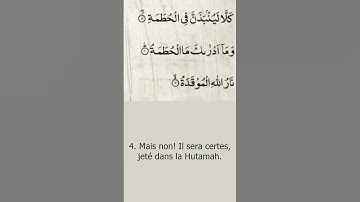 كَلَّا لَيُنْبَذَنَّ فِي الْحُطَمَةِ ۝
وَمَا أَدْرٰىكَ مَا الْحُطَمَةُ ۝
نَارُ اللهِ الْمُوْقَدَةُ ۝
4. Mais non! Il sera certes,
jeté dans la Hutamah.